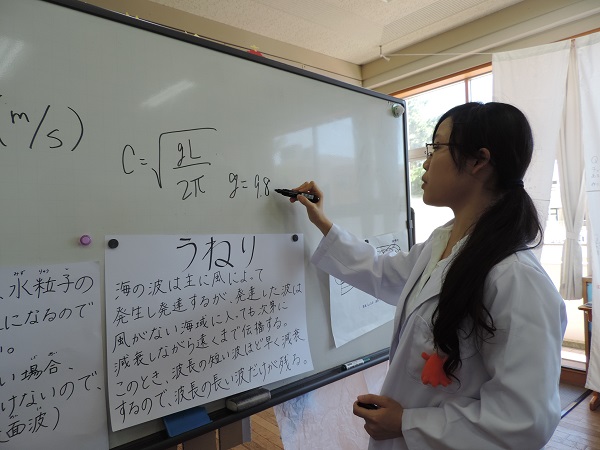 (m/s)
C=√gL/2π
g=9.8
水粒子の
になるので
場合、
けないので、
面波)
うねり
海の波は主に風によって
発生し発達するが、発達した波は
風がない海域に入っても次第に
減衰しながら遠くまで伝播する。
このとき、波長の短い波ほど早く減衰
するので、波長の長い波だけが残る。